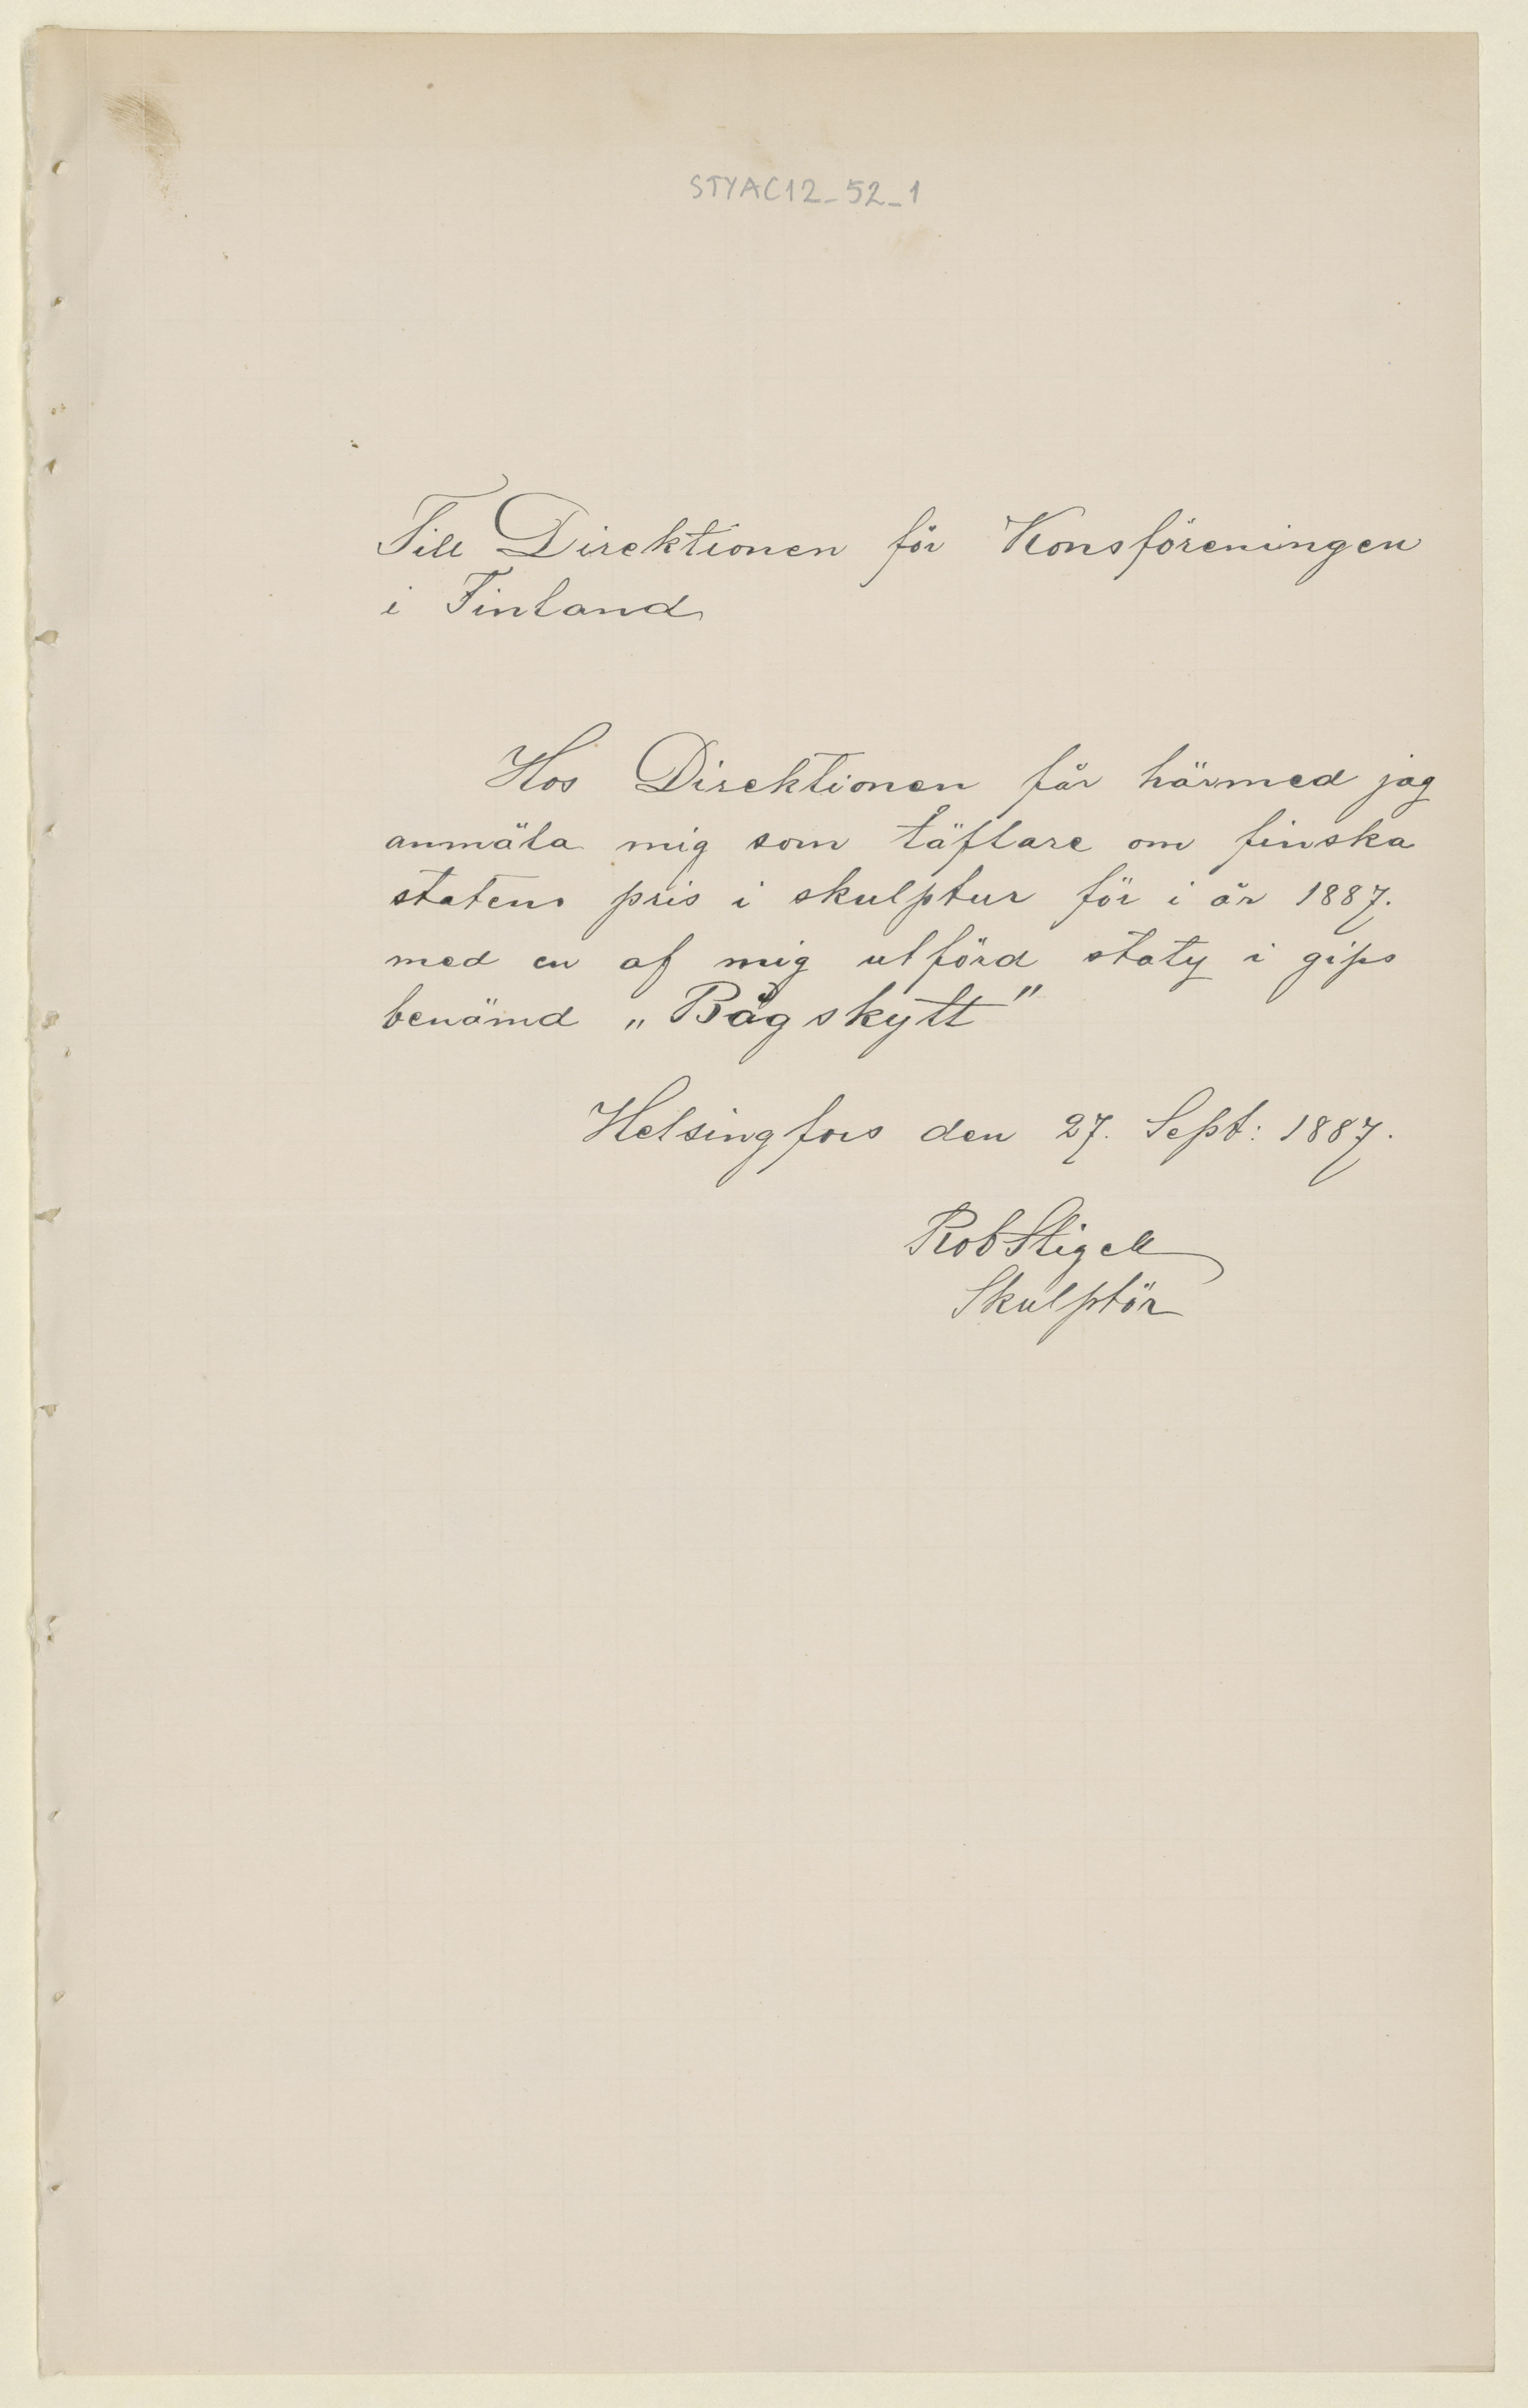 STYAC12_52_1
Till Direktionen för Konsföreningen
i Finland
Hos Direktionen får härmed jag
anmäla mig som täflare om finska
statens pris i skulptur för i år 1887.
med en af mig utförd staty i gips
benämd „Bågskytt"
Helsingfors den 27. Sept: 1887.
Rob Stigell
Skulptör